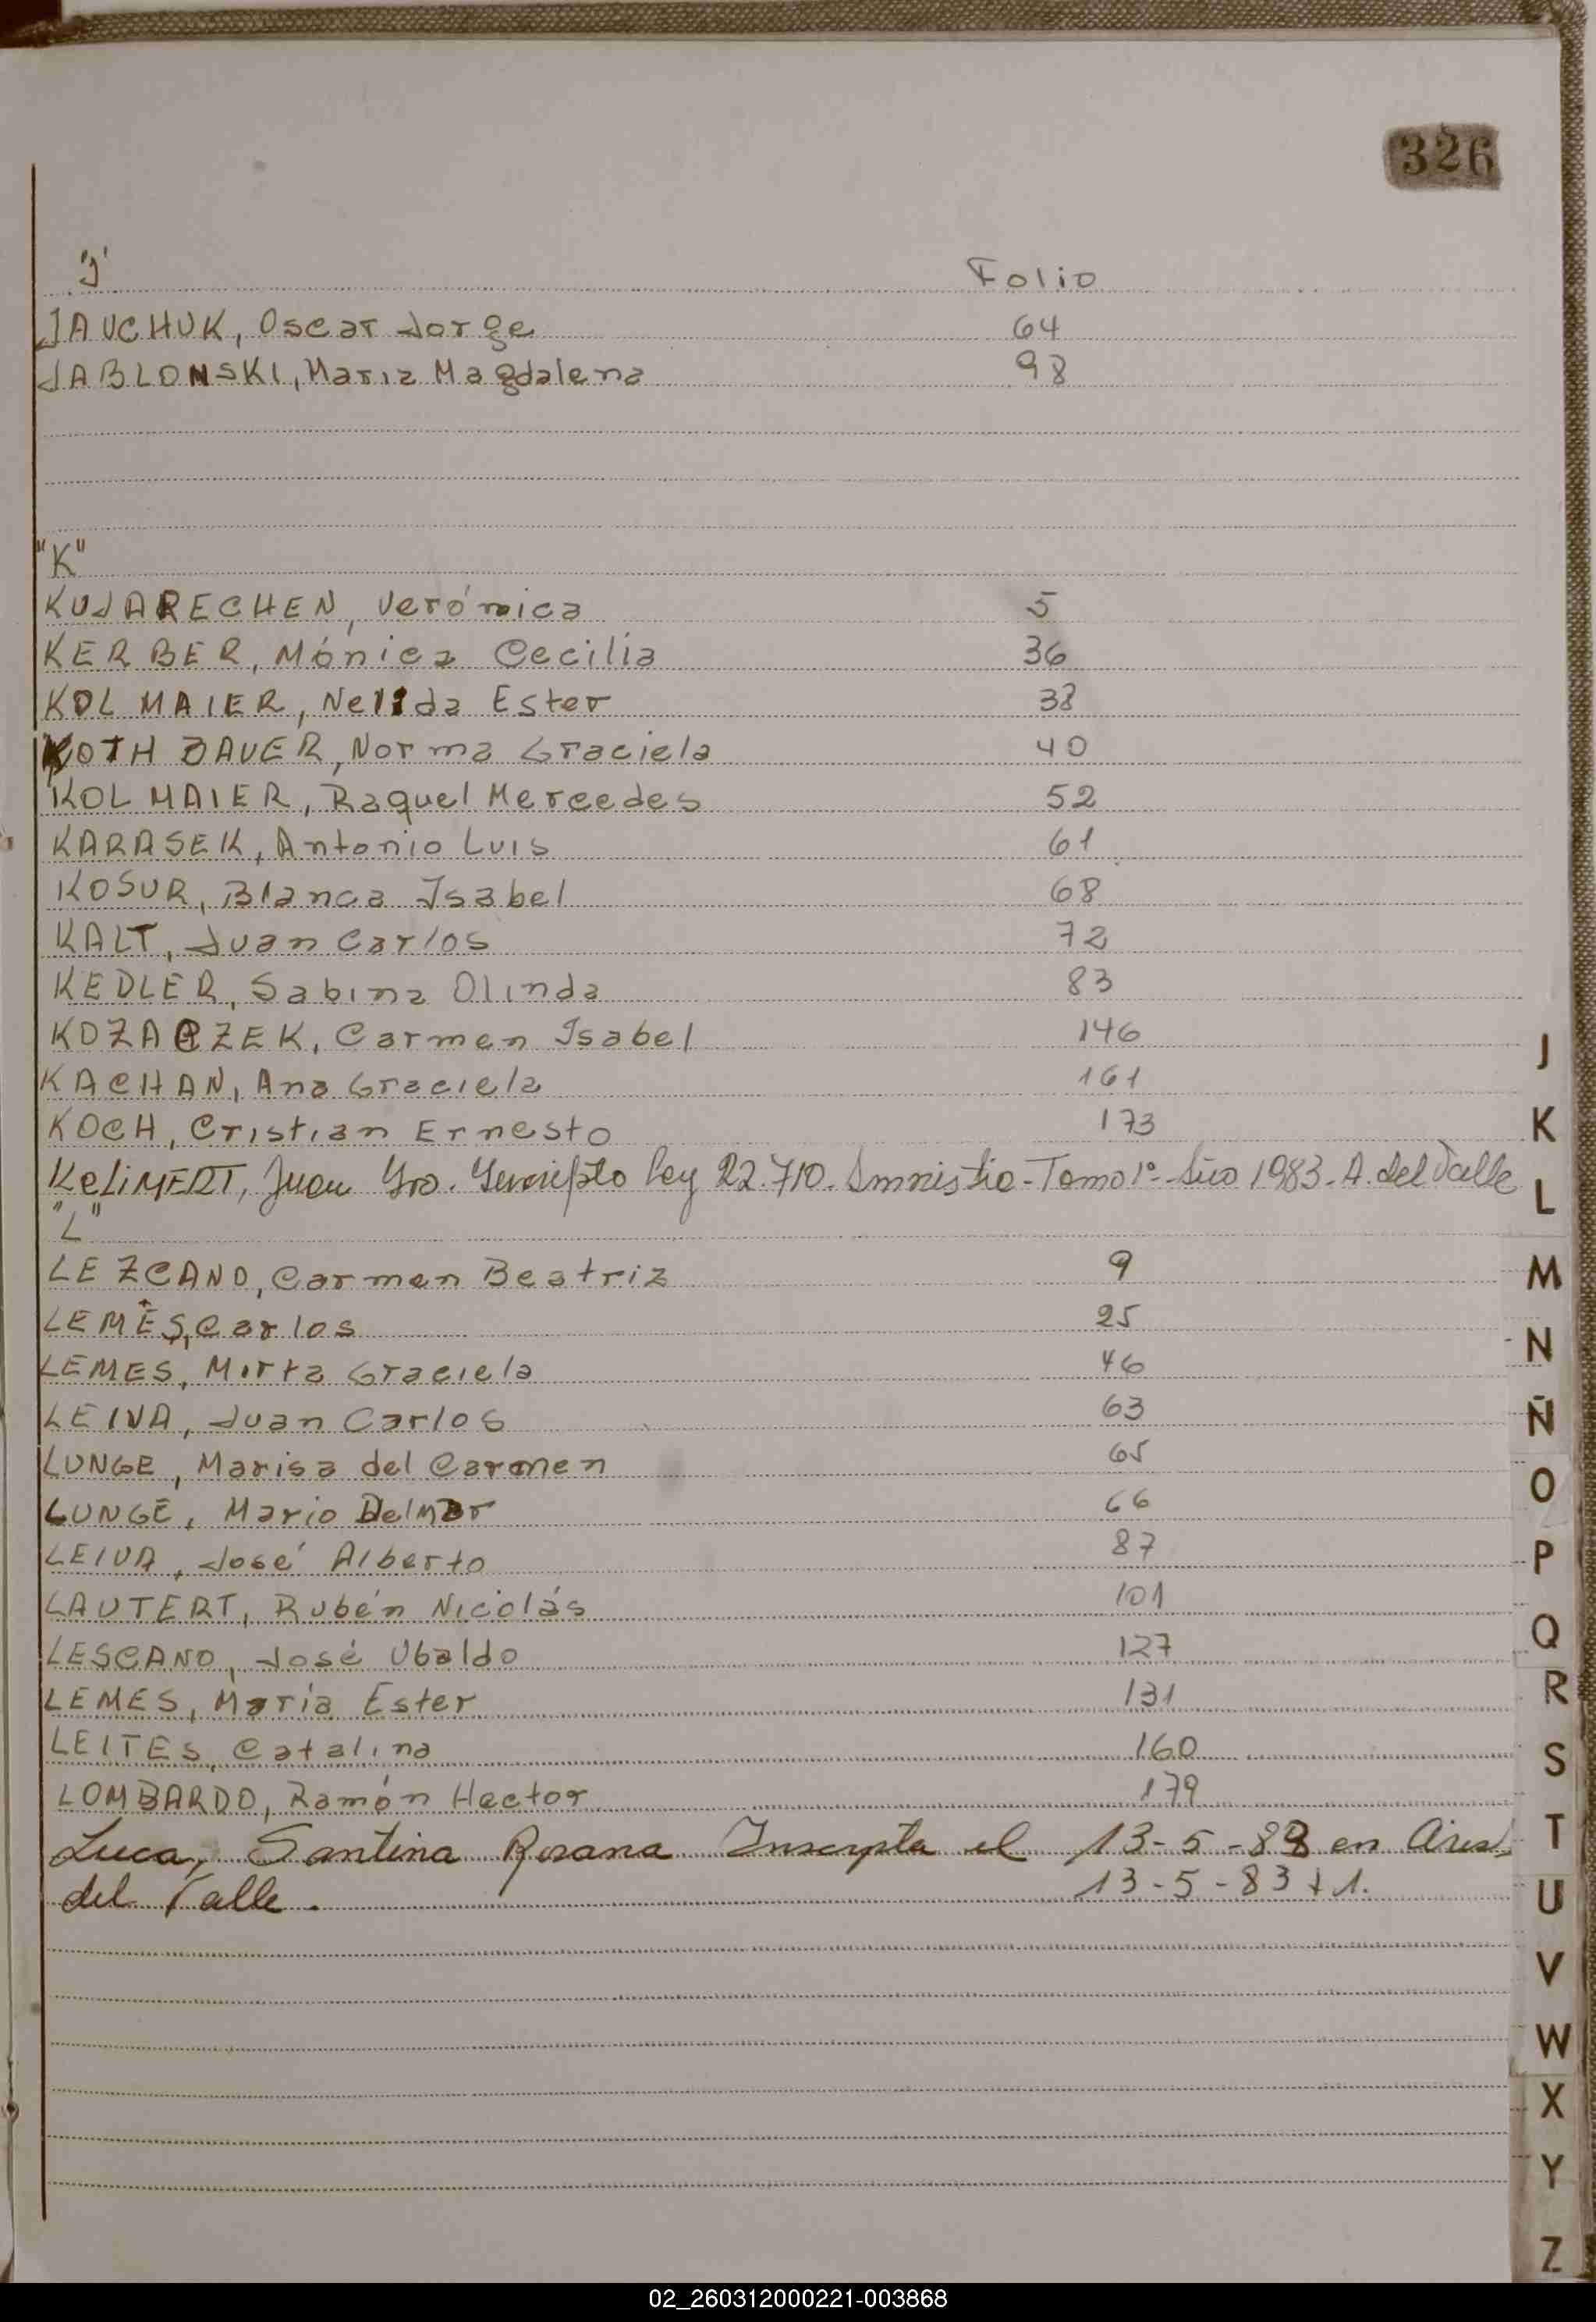 326
"J" Folio
JAUCHUK, Oscar Jorge 64
JABLONSKI, Maria Magdalena 98
"K"
KUJARECHEN, Verónica 5
KERBER, Mónica Cecilia 36
KOLMAIER, Nelida Ester 38
KOTH BAUER, Norma Graciela 40
KOLMAIER, Raquel Mercedes 52
KARASEK, Antonio Luis 61
KOSUR, Blanca Isabel 68
KALT, Juan Carlos 72
KEDLER, Sabina Olinda 83
KOZACZEK, Carmen Isabel 146
KACHAN, Ana Graciela 161
KOCH, Cristian Ernesto 173
KeLiMERT, Juan Inscripto Ley 22.710. Amnistia - Tomo 1º - Año 1983. A. del Valle
"L"
LEZCANO, Carmen Beatriz 9
LEMES, Carlos 25
LEMES, Mirta Graciela 46
LEIVA, Juan Carlos 63
LUNGE, Marisa del Carmen 65
LUNGE, Mario Delmar 66
LEIVA, José Alberto 87
LAUTERT, Rubén Nicolás 101
LESCANO, José Ubaldo 127
LEMES, María Ester 131
LEITES, Catalina 160
LOMBARDO, Ramón Hector 179
Luca, Santina Rosana Inscripta el 13-5-83 en Arist.
del Valle. 13-5-83 t 1.
J
K
L
M
N
Ñ
O
P
Q
R
S
T
U
V
W
X
Y
Z
02_260312000221-003868